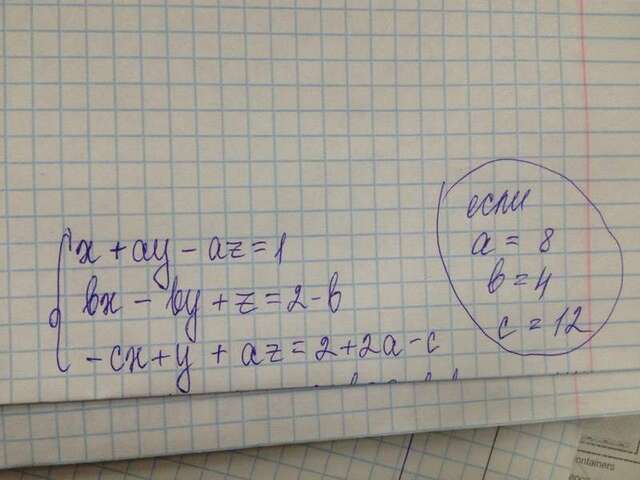 x + ay - az = 1
bx - by + z = 2 - b
-cx + y + az = 2 + 2a - c
если
a = 8
b = 4
c = 12
ontainers